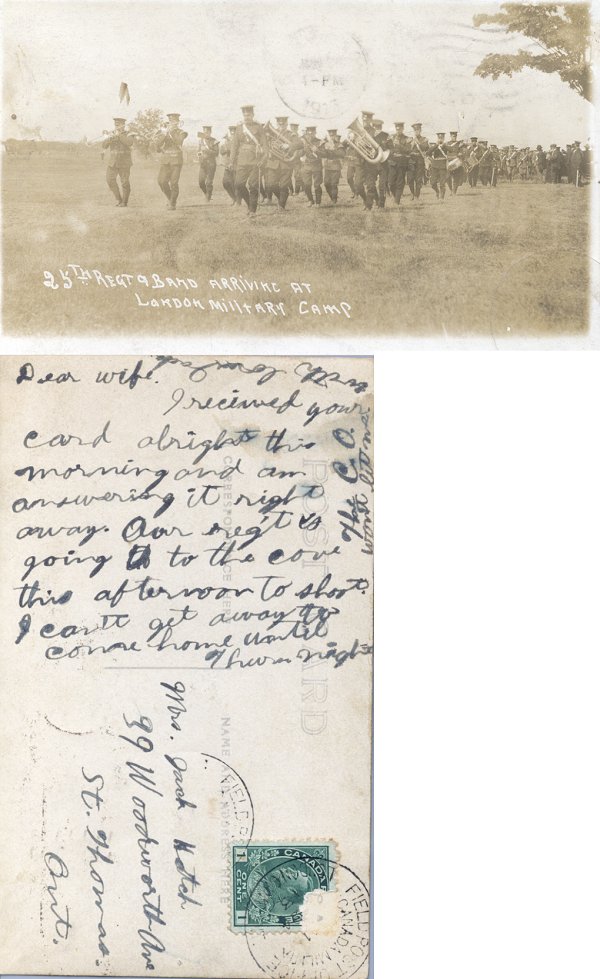 4-PM
25TH REGT & BAND ARRIVING AT
LONDON MILITARY CAMP
Dear wife.
I recieved your
card alright this
morning and am
answering it right
away. Our reg't is
going to to the cove
this afternoon to shoot.
I can't get away to
come home until
Thurs night
The C.O.
wont let us.
POST CARD
CORRESPONDENCE HERE
NAME AND ADDRESS HERE
Mrs. Jack Hatch
39 Woodworth Ave
St. Thomas.
Ont.
FIELD PO
CANADA
1 ONE CENT 1
FIELD POST
CANADIAN MILITIA